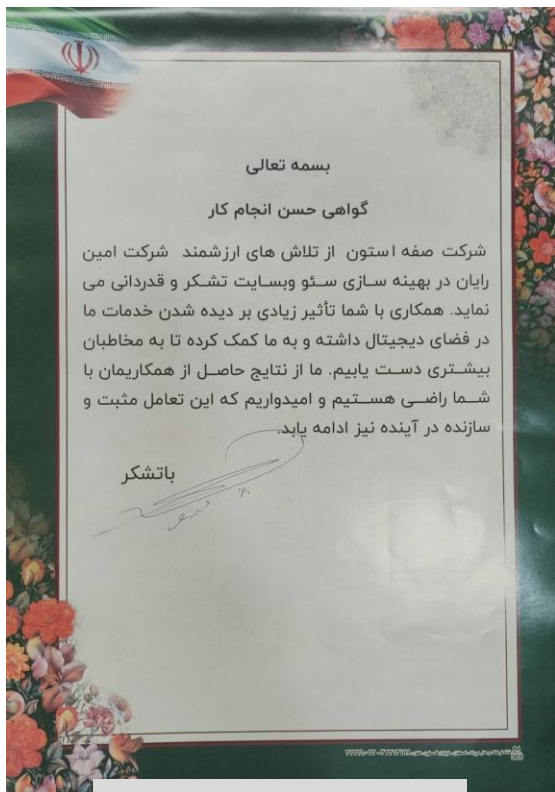 بسمه تعالی
گواهی حسن انجام کار
شرکت صفه استون از تلاش های ارزشمند شرکت امین
رایان در بهینه سازی سئو وبسایت تشکر و قدردانی می
نماید. همکاری با شما تأثیر زیادی بر دیده شدن خدمات ما
در فضای دیجیتال داشته و به ما کمک کرده تا به مخاطبان
بیشتری دست یابیم. ما از نتایج حاصل از همکاریمان با
شما راضی هستیم و امیدواریم که این تعامل مثبت و
سازنده در آینده نیز ادامه یابد.
باتشکر